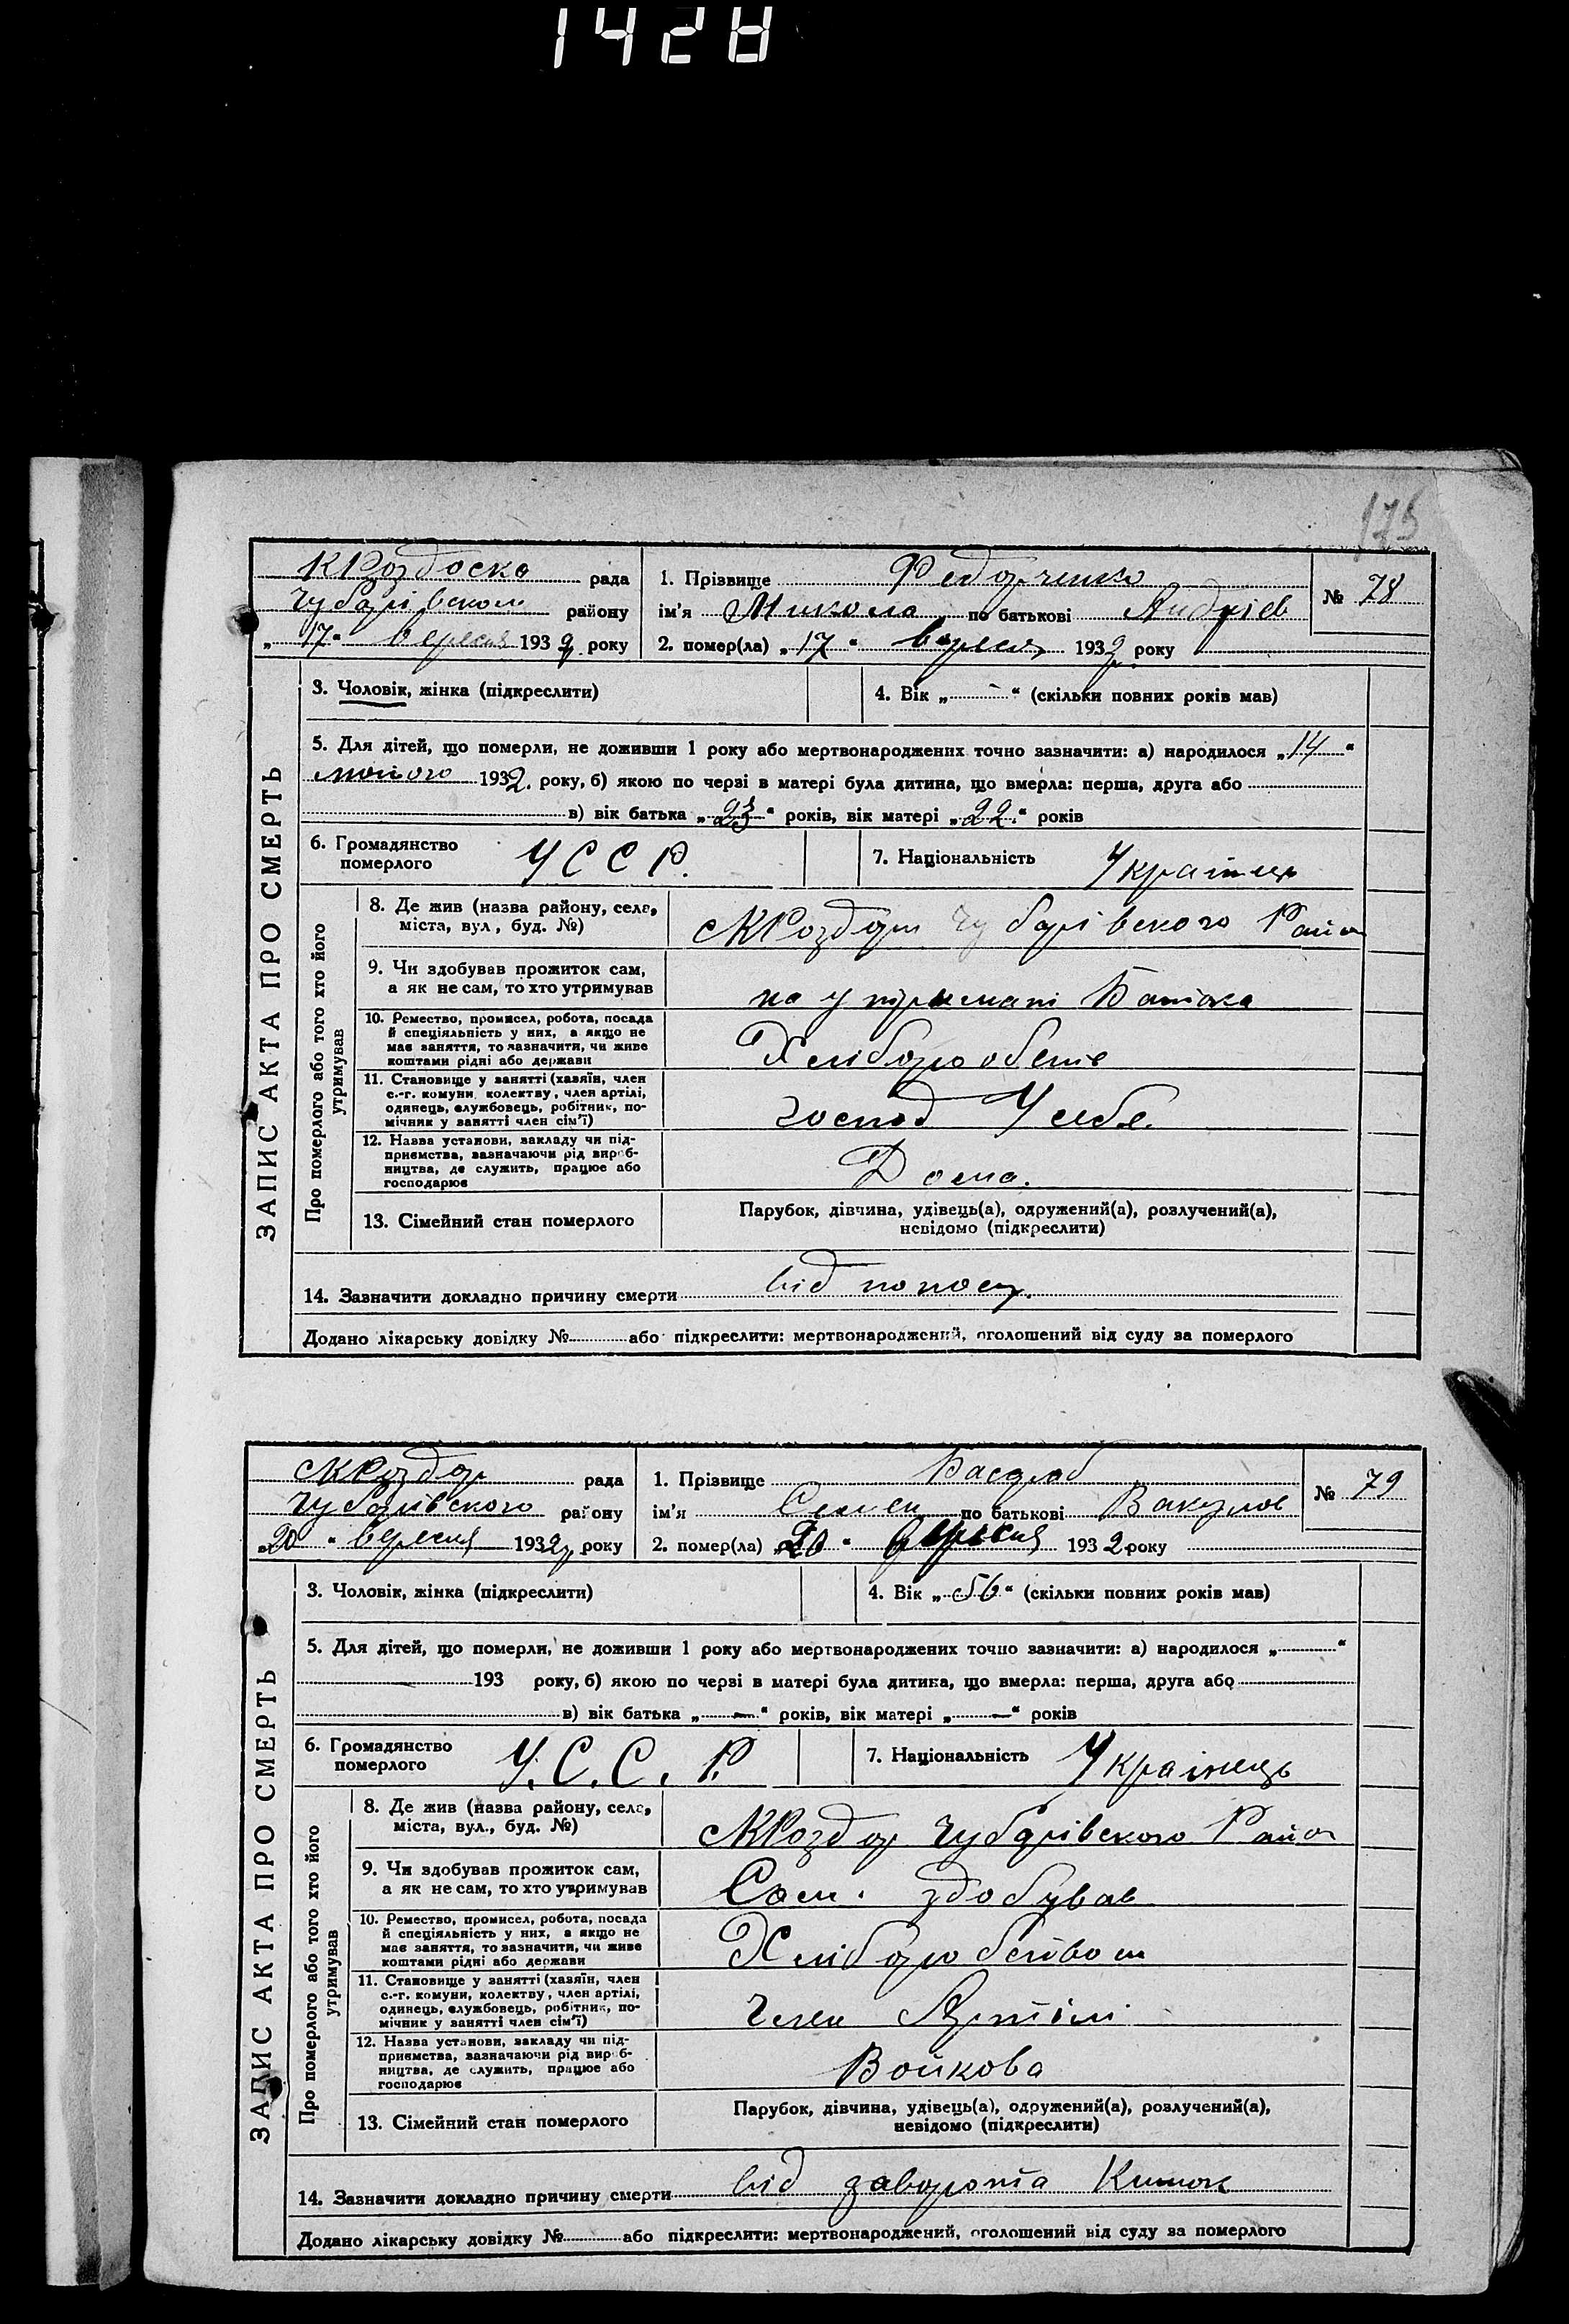 1428
175
КРоздоска рада
Чубарівском району
„17“ вересня 1932 року
1. Прізвище Федорченко
ім'я Микола по батькові Андріев
2. помер(ла) „17“ вересня 1932 року
№ 78
ЗАПИС АКТА ПРО СМЕРТЬ
3. Чоловік, жінка (підкреслити)
4. Вік „ - “ (скільки повних років мав)
5. Для дітей, що померли, не доживши 1 року або мертвонароджених точно зазначити: а) народилося „14“
лютого 1932. року, б) якою по черзі в матері була дитина, що вмерла: перша, друга або
в) вік батька „23“ років, вік матері „22“ років
6. Громадянство
померлого
УССР.
7. Національність Українець
Про померлого або того хто його
утримував
8. Де жив (назва району, села,
міста, вул, буд. №)
МКРоздор Чубарівского Район
9. Чи здобував прожиток сам,
а як не сам, то хто утримував
на утримані Батька
10. Ремество, промисел, робота, посада
й спеціяльність у них, а якщо не
має заняття, то зазначити, чи живе
коштами рідні або держави
11. Становище у занятті (хазяїн, член
с.-г. комуни, колектву, член артілі,
одинець, службовець, робітник, по-
мічник у занятті член сім'ї)
господ У себе.
12. Назва установи, закладу чи під-
приємства, зазначаючи рід вироб-
ництва, де служить, працює або
господарює
Дома.
13. Сімейний стан померлого
Парубок, дівчина, удівець(а), одружений(а), розлучений(а),
невідомо (підкреслити)
14. Зазначити докладно причину смерти від поносу.
Додано лікарську довідку № або підкреслити: мертвонароджений, оголошений від суду за померлого
МКРоздор рада
Чубарівского району
„20“ вересня 1932 року
1. Прізвище
ім'я Семен по батькові Вакулов
2. помер(ла) „20“ вересня 1932 року
№ 79
ЗАПИС АКТА ПРО СМЕРТЬ
3. Чоловік, жінка (підкреслити)
4. Вік „56“ (скільки повних років мав)
5. Для дітей, що померли, не доживши 1 року або мертвонароджених точно зазначити: а) народилося „ “
193 року, б) якою по черзі в матері була дитина, що вмерла: перша, друга або
в) вік батька „ — “ років, вік матері „ — “ років
6. Громадянство
померлого
У.С.С.Р.
7. Національність Українець
Про померлого або того хто його
утримував
8. Де жив (назва району, села,
міста, вул., буд. №)
МКРоздор Чубарівского Район
9. Чи здобував прожиток сам,
а як не сам, то хто утримував
Сам. здобував
10. Ремество, промисел, робота, посада
й спеціяльність у них, а якщо не
має заняття, то зазначити, чи живе
коштами рідні або держави
Хліборобством
11. Становище у занятті (хазяїн, член
с.-г. комуни, колектву, член артілі,
одинець, службовець, робітник, по-
мічник у занятті член сім'ї)
Член Артілі
12. Назва установи, закладу чи під-
приємства, зазначаючи рід вироб-
ництва, де служить, працює або
господарює
Войкова
13. Сімейний стан померлого
Парубок, дівчина, удівець(а), одружений(а), розлучений(а),
невідомо (підкреслити)
14. Зазначити докладно причину смерти від заворота Кишок
Додано лікарську довідку № або підкреслити: мертвонароджений, оголошений від суду за померлого